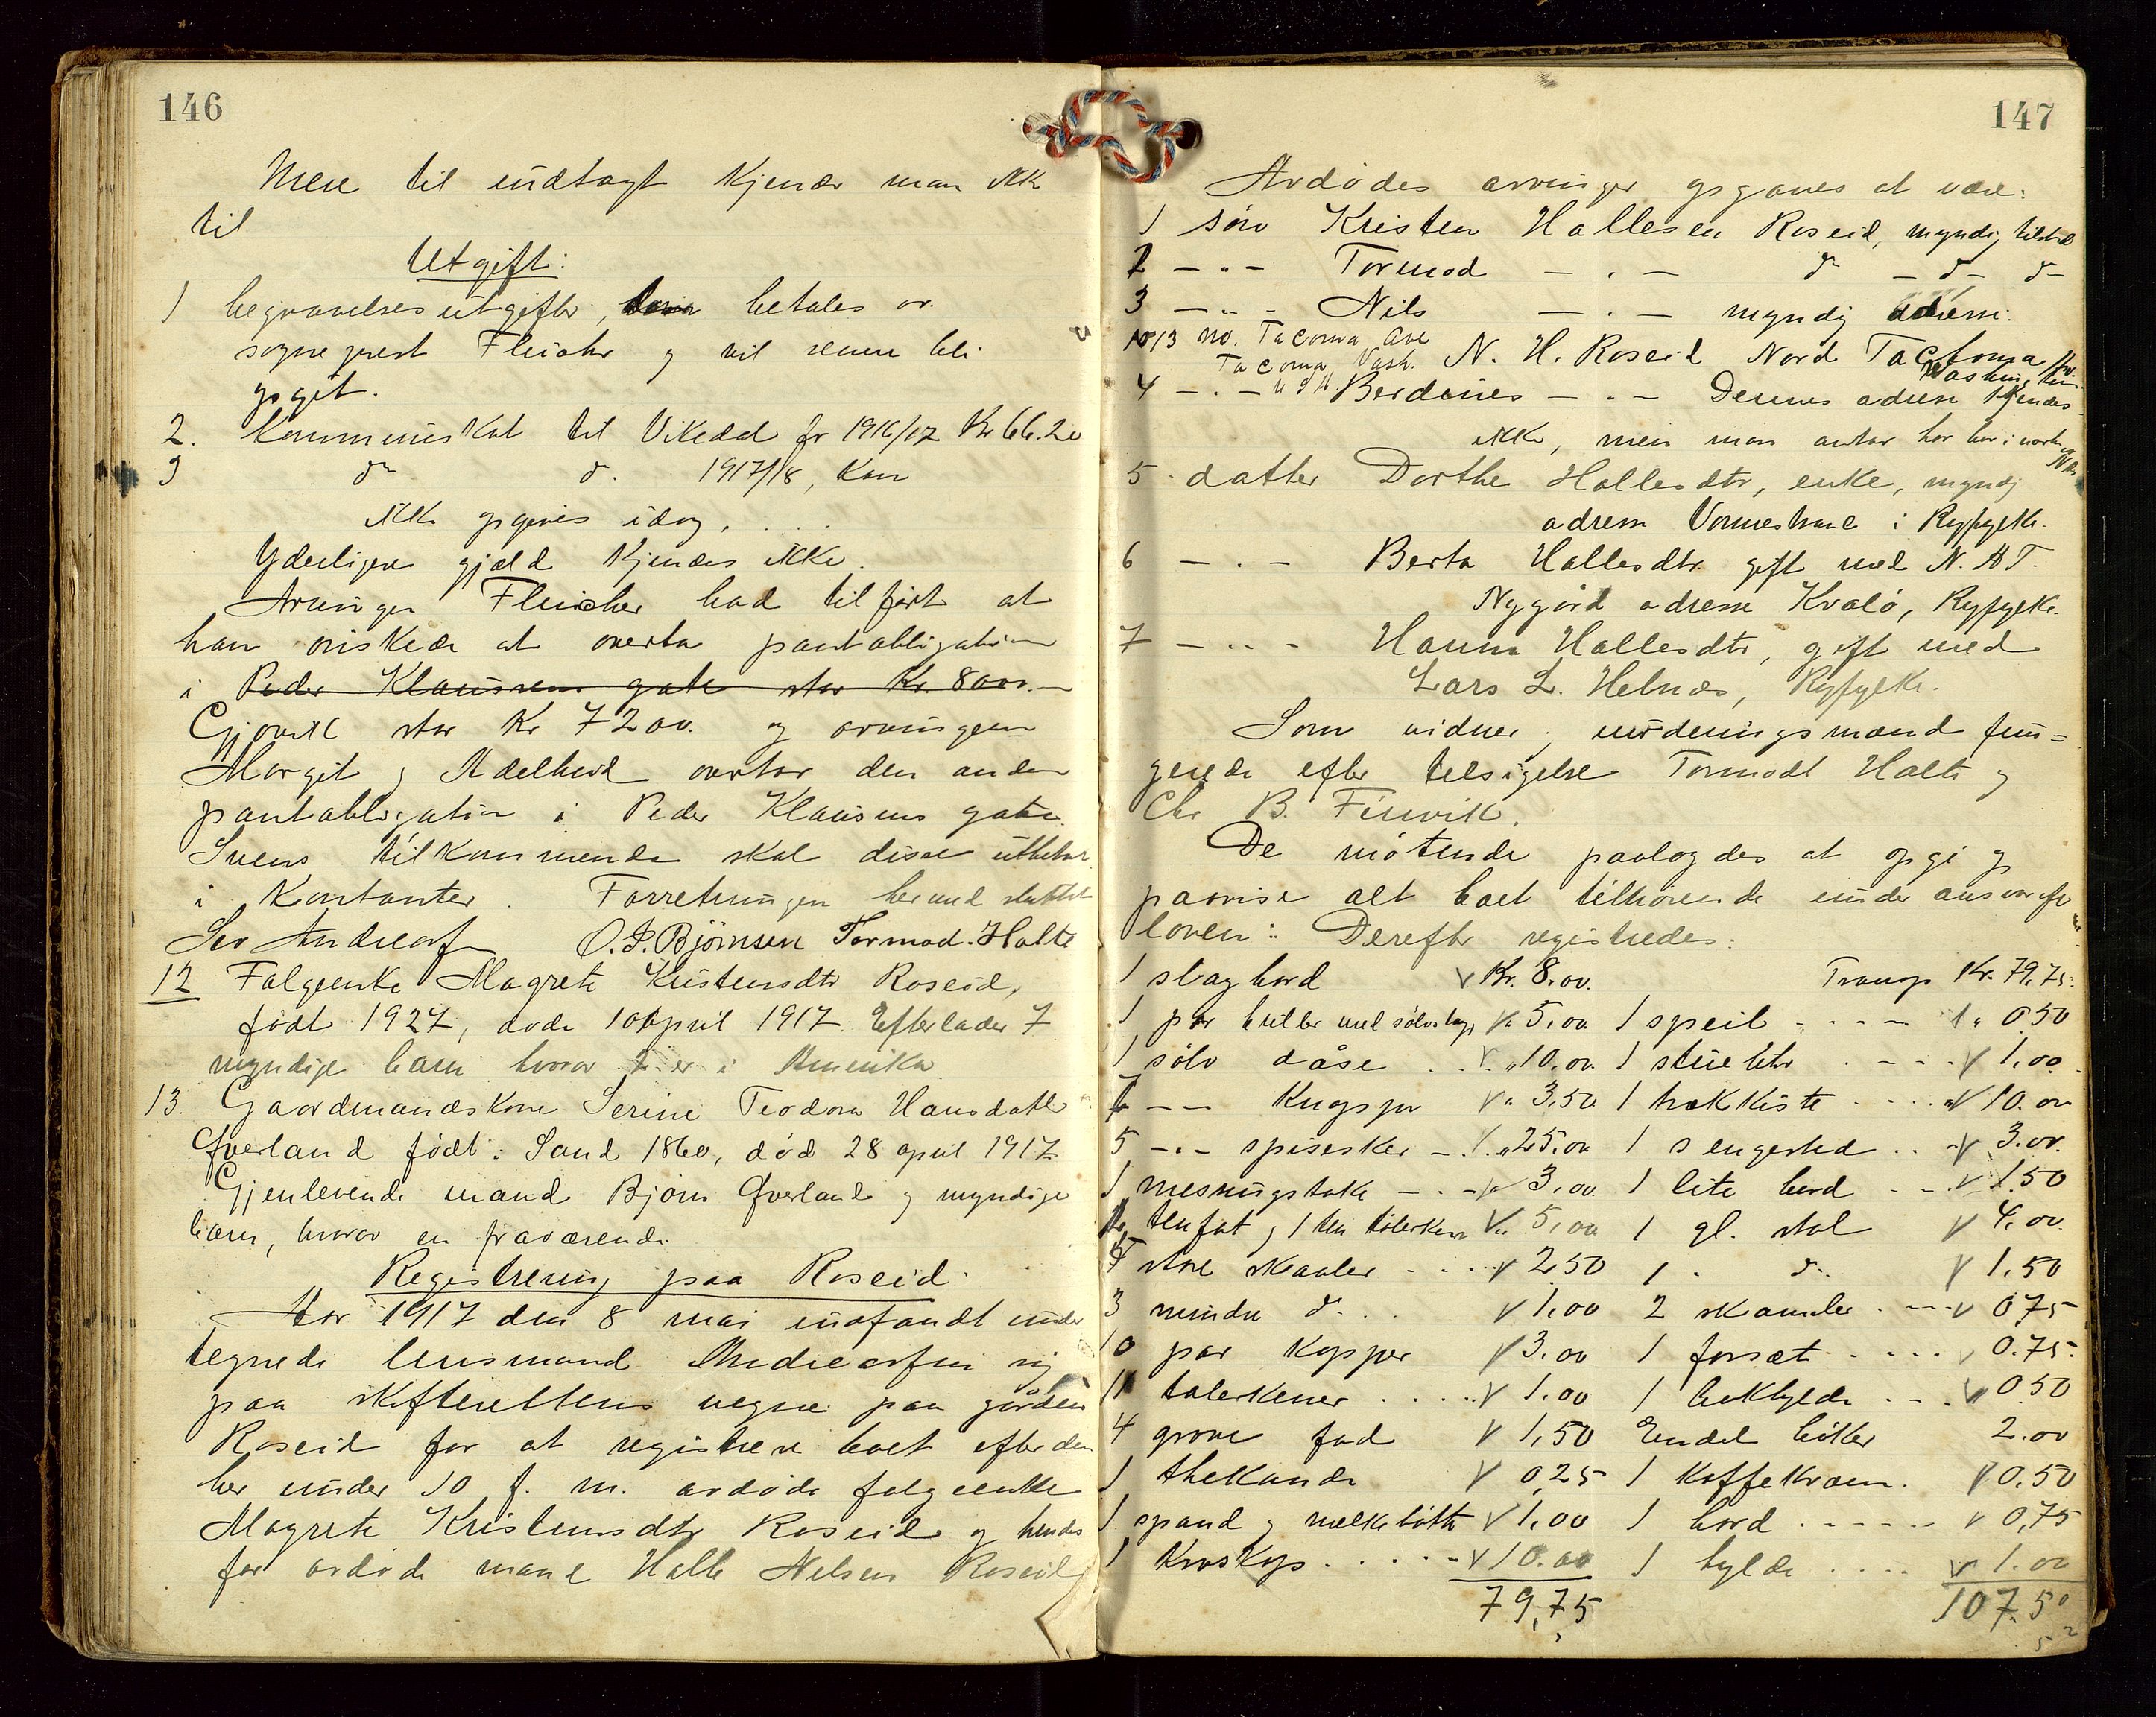 146
Mere til indtægt kjender man ikke
til
Utgift:
1 begravelsesutgifter, betales av
sogneprest Fleicher og vil senere bli
opgit.
2. Kommuneskat til Vikedal for 1916/17 Kr 66.20
3 do do. 1917/18, kan
ikke opgives idag.
Yderligere gjæld kjendes ikke.
Arvingen Fleischer bad tilført at
han ønsker at overta pantobligation
i Peder Klausens gate stor Kr. 8000.-
Gjøvik stor Kr 7200. og arvingen
Margit og Adelheid overtar den anden
pantobligation i Peder Klausens gate.
Svens tilkommende skal disse utbetale
i kontanter. Forretningen hermed sluttet
Sev Andreasen O. P. Bjørnsen Tormod. Halte
12 Folgeenke Magrete Kristensdtr Roseid,
født 1927, døde 10 April 1917. Efterlader 7
myndige barn hvorav 2 er i Amerika
13. Gaardmandskone Serine Teodora Hansdatter
Øverland født i Sand 1860, død 28 april 1917
Gjenlevende mand Bjørn Øverland og myndige
barn, hvorav en fraværende.
Registrering paa Roseid.
Aar 1917 den 8 mai indfandt under
tegnede lensmand Andreassen sig
paa skifterettens vegne paa gården
Roseid for at registrere boet efter den
her under 10 f. m. avdøde folgeenke
Magrete Kristensdtr Roseid og hendes
før avdøde mand Halle Nilsen Roseid
147
Avdødes arvinger opgaves at være:
1 søn Kristen Hallesen Roseid, myndig tilstede
2 - " - Tormod - " - do - do - do
3 - " - Nils - " - myndig adresse:
1013 no. Tacoma Ave
Tacoma, Vash. N. H. Roseid Nord Tacoma Av.
U S A. Washington
4 - " - Berdines - " - Dennes adresse kjendes
ikke, men man antar han bor i nærheten av
Nils
5 datter Dorthe Hallesdtr, enke, myndig
adresse Vormestrand i Ryfylke.
6 - " - Berta Hallesdtr. gift med N. A T.
Nygård adresse Kvalø, Ryfylke.
7 - " - Hanna Hallesdtr, gift med
Lars L. Helnæs, Ryfylke.
Som vidner og vurderingsmænd fun=
gerede efter tilsigelse Tormodt Halte og
Chr B. Finvik.
De møtende paalagdes at opgi og
paavise alt boet tilhørende under ansvar efter
loven: Derefter registredes:
1 slagbord Kr. 8.00. Transp Kr. 79,75.
1 par briller med sølv " 5,00 1 speil " 0.50
1 sølv dåse " 10.00 1 stueuhr 1,00
- " - 3,50 1 trækkiste 10.00
5 - " - spiseskeer " 25.00 1 sengested 3.00.
1 messingstake 3,00 1 lite bord 1.50
tinfat og 1 tin talerken 5,00 1 gl. stol 4.00
store skaaler 2,50 1 " do 1,50
3 mindre do 1,00 2 skamler 0,75
10 par kopper 3.00 1 forsæt 0.75.
11 talerkener 1.00 1 bokhylde 0.50
4 grove fad 1,50 Endel bøker 2.00
1 thekande 0,25 1 kaffekværn. 0.50
1 spand og melkebøtte 1,00 1 bord 0,75
1 10.00 1 hylde 1.00
79,75 107.50